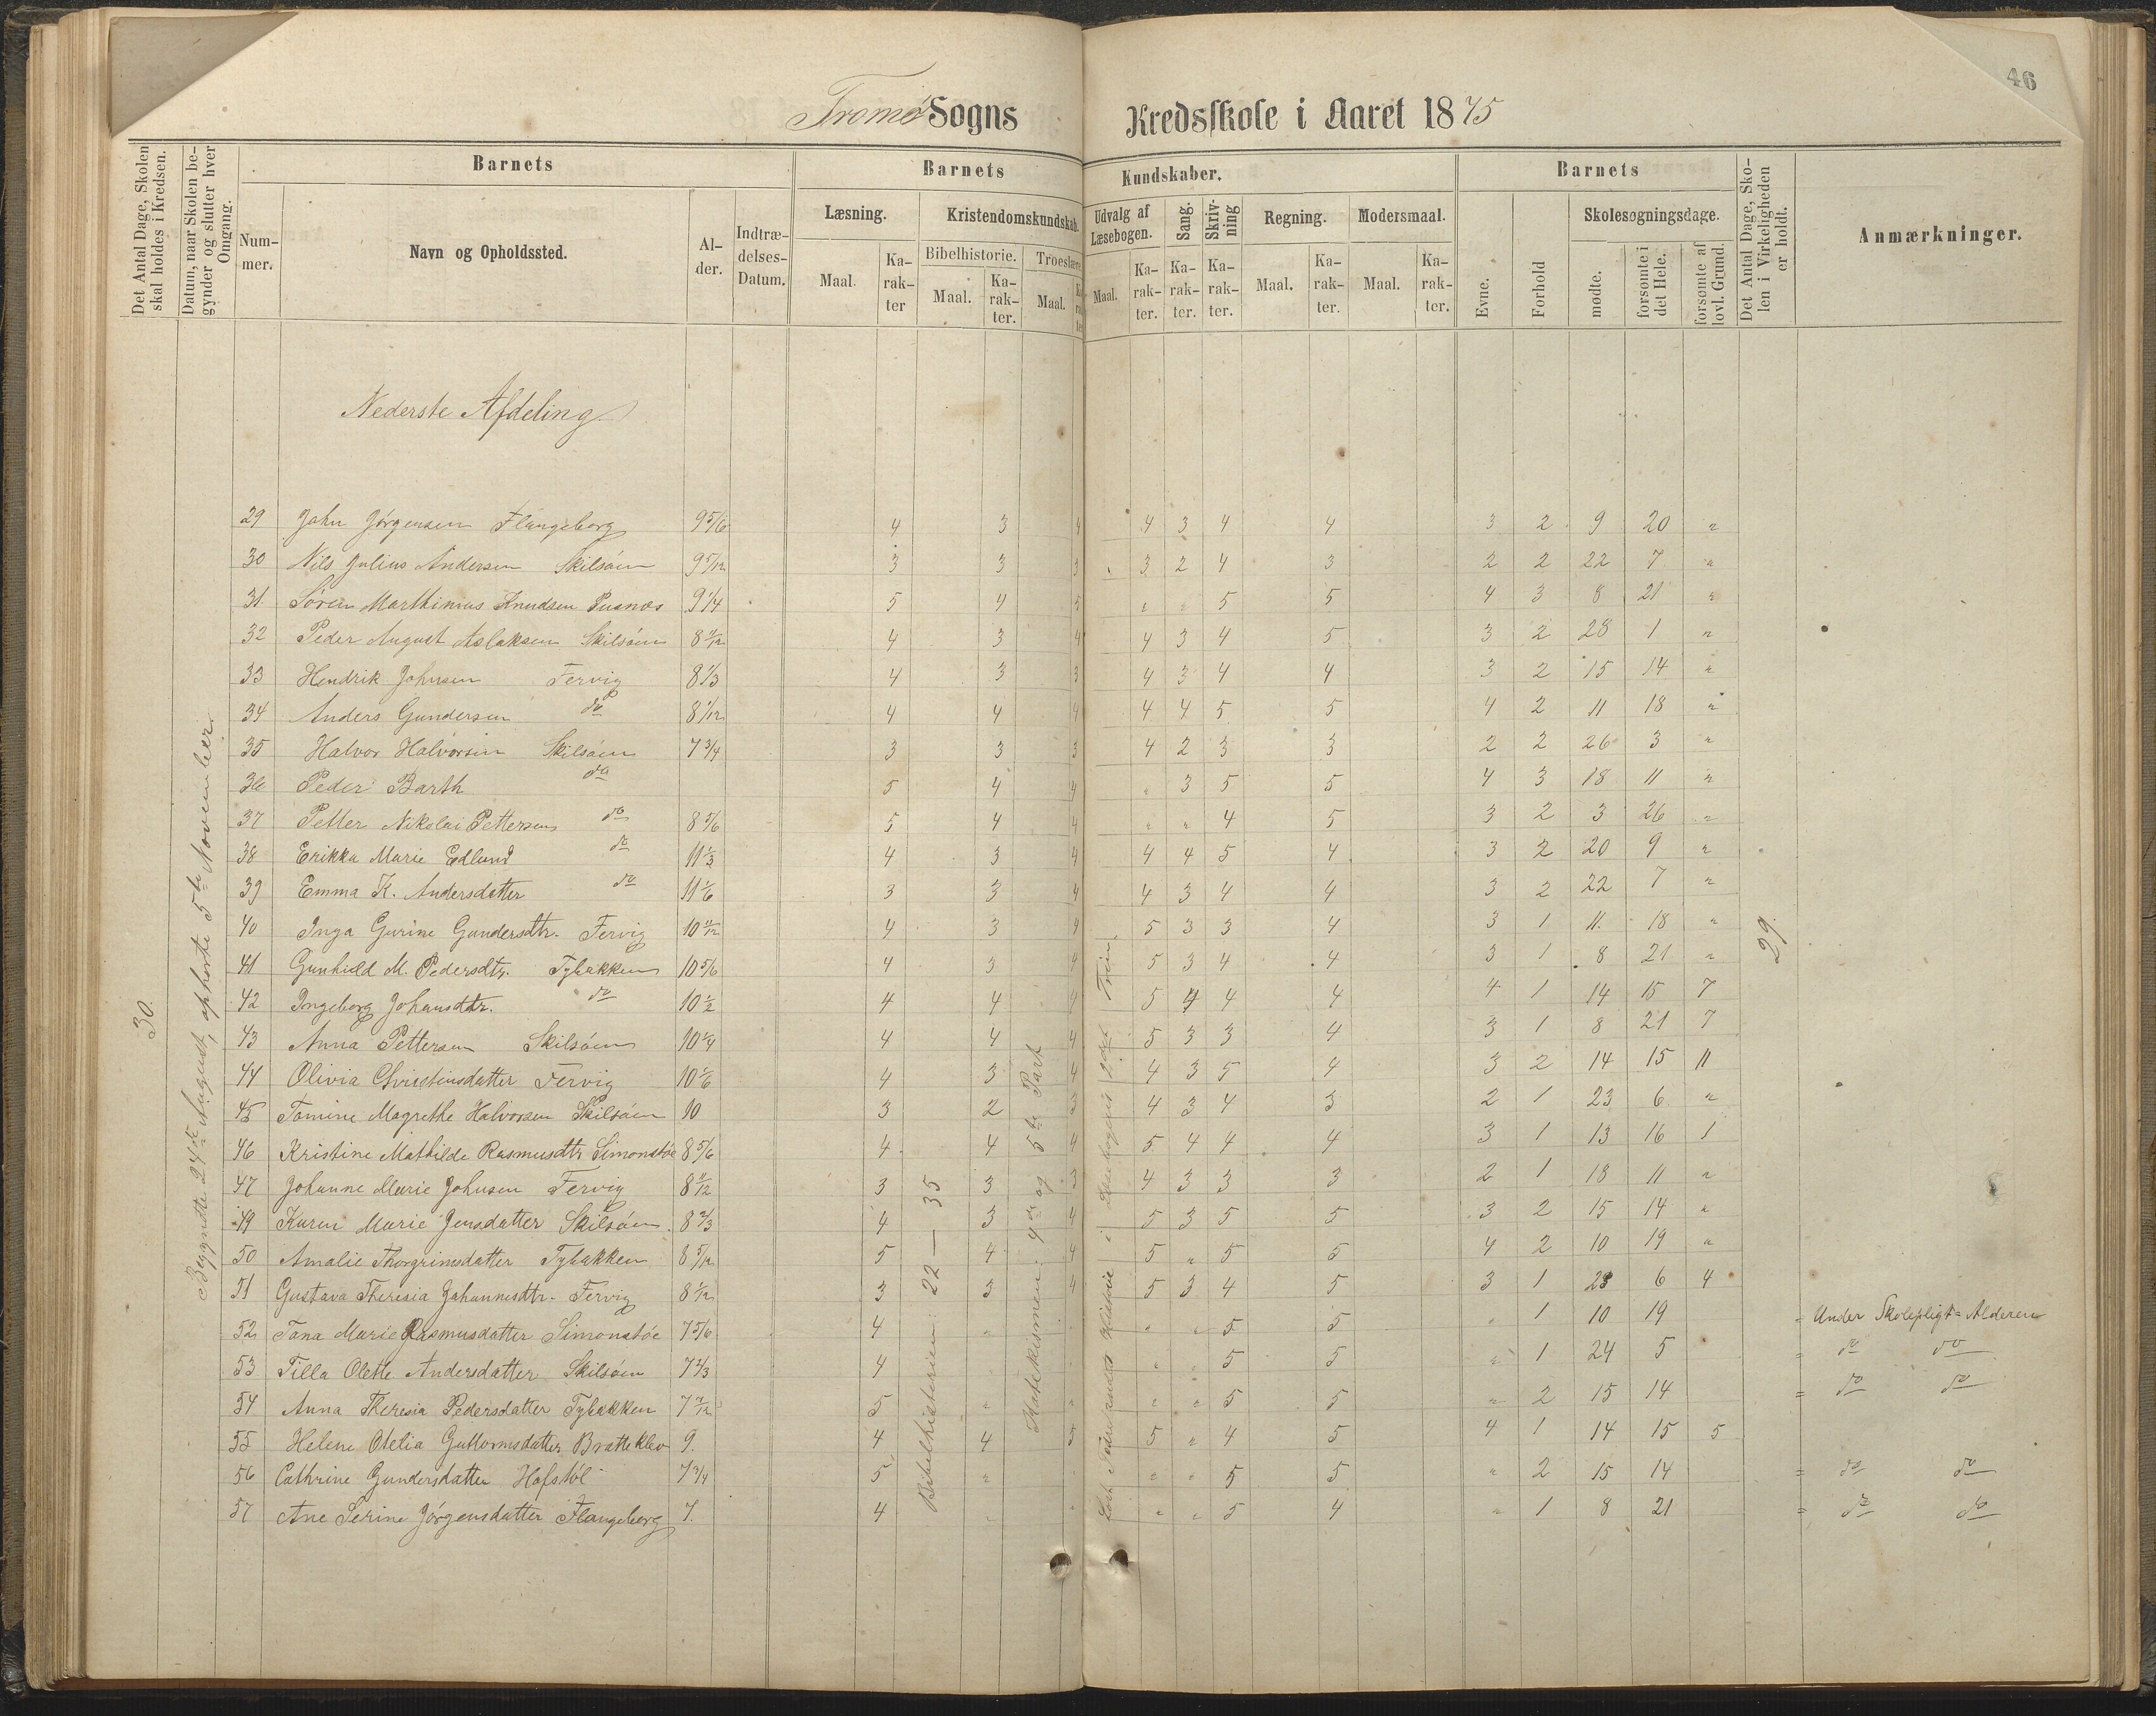 46
Tromø Sogns Kredsskole i Aaret 1875
Det Antal Dage, Skolen skal holdes i Kredsen.
Datum, naar Skolen begynder og slutter hver Omgang.
Barnets
Nummer.
Navn og Opholdssted.
Alder.
Indtrædelses-Datum.
Barnets Kundskaber.
Læsning.
Maal.
Karakter
Kristendomskundskab.
Bibelhistorie.
Maal.
Karakter.
Troeslære
Maal.
Udvalg af Læsebogen.
Maal.
Karakter.
Sang.
Karakter.
Skrivning
Karakter.
Regning.
Maal.
Karakter.
Modersmaal.
Maal.
Karakter.
Barnets
Evne.
Forhold
Skolesøgningsdage.
mødte.
forsømte i det Hele.
forsømte af lovl. Grund.
Det Antal Dage, Skolen i Virkeligheden er holdt.
Anmærkninger.
Nederste Afdeling
30.
Begyndte 24de August, ophørte 5te November.
Bibelhistorien: 22 — 35
Katekismen: 4de og 5te Part
29.
29 John Jørgensen Flangeborg 9 5/6 4 3 4 4 3 4 4 3 2 9 20 "
30 Nils Julius Andersen Skilsøen 9 5/12 3 3 3 3 2 4 3 2 2 22 7 "
31 Søren Marthinius Knudsen Pusnæs 9 1/4 5 4 5 " " 5 5 4 3 8 21 "
32 Peder August Aslaksen Skilsøen 8 11/12 4 3 4 4 3 4 5 3 2 28 1 "
33 Hendrik Johnsen Fervig 8 1/3 4 3 3 4 3 4 4 3 2 15 14 "
34 Anders Gundersen do 8 1/12 4 4 4 4 4 5 5 4 2 11 18 "
35 Halvor Halvorsen Skilsøen 7 3/4 3 3 3 4 2 3 3 2 2 26 3 "
36 Peder Barth do 5 4 4 " 3 5 5 4 3 18 11 "
37 Petter Nikolai Pettersen do 8 5/6 5 4 4 " " 4 5 3 2 3 26 "
38 Erikka Marie Edlund do 11 1/3 4 3 4 4 4 5 4 3 2 20 9 "
39 Emma K. Andersdatter do 11 1/6 3 3 4 4 3 4 4 3 2 22 7 "
40 Inga Gurine Gundersdtr. Fervig 10 11/12 4 3 4 5 3 3 4 3 1 11 18 "
41 Gunhild M. Pedersdtr. Tybakken 10 5/6 4 3 4 5 3 4 4 3 1 8 21 "
42 Ingeborg Johansdtr. do 10 1/2 4 4 4 5 4 4 4 4 1 14 15 7
43 Anna Pettersen Skilsøen 10 1/4 4 4 4 5 3 3 4 3 1 8 21 7
44 Olivia Christensdatter Fervig 10 1/6 4 3 4 4 3 5 4 3 2 14 15 11
45 Tomine Magrethe Halvorsen Skilsøen 10 3 2 3 4 3 4 3 2 1 23 6 "
46 Kristine Mathilde Rasmusdtr Simonstøe 8 5/6 4 4 4 5 4 4 4 3 1 13 16 1
47 Johanne Marie Johnsen Fervig 8 11/12 3 3 3 4 3 3 3 2 1 18 11 "
49 Karen Marie Jensdatter Skilsøen 8 2/3 4 3 4 5 3 5 5 3 2 15 14 "
50 Amalie Thorgrimsdatter Tybakken 8 5/12 5 4 4 5 " 5 5 4 2 10 19 "
51 Gustava Theresia Johannesdtr. Fervig 8 1/12 3 3 4 5 3 4 5 3 1 23 6 4
52 Tana Marie Rasmusdatter Simonstøe 7 5/6 4 " " " 5 5 " 1 10 19 = Under Skolepligt=Alderen
53 Tilla Olette Andersdatter Skilsøen 7 2/3 4 " " 5 5 " 1 24 5 = do do
54 Anna Theresia Pedersdatter Tybakken 7 7/12 5 " " " " 5 5 " 2 15 14 = do do
55 Helene Otelia Guttormsdatter Bratteklev 9. 4 4 5 5 " 4 5 4 1 14 15 5
56 Cathrine Gundersdatter Hofstøl 7 3/4 5 " " " 5 5 " 2 15 14 = do do
57 Ane Serine Jørgensdatter Flangeborg 7. 4 " " " " 5 4 " 1 8 21 = do do